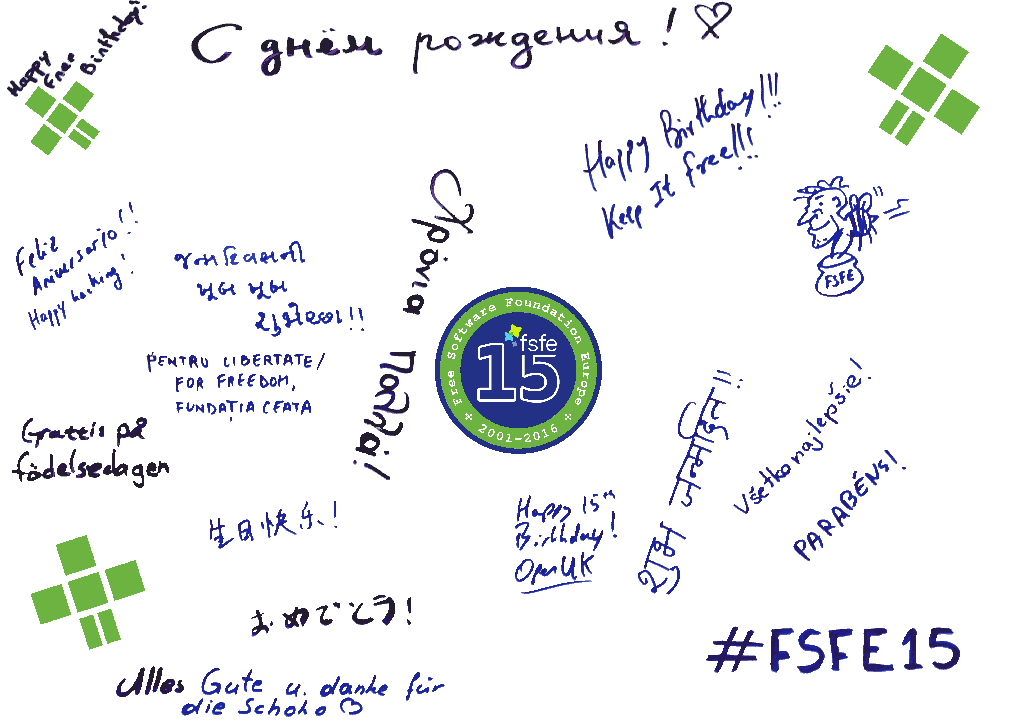 Happy
Free
Birthday!
С днём рождения! ♡
Happy Birthday!!!
Keep It free!!!
FSFE
Χρόνια
Πολλά!
Feliz
Aniversario!!
Happy hacking!
જન્મદિવસની
ખુબ ખુબ
શુભેચ્છા!!
PENTRU LIBERTATE/
FOR FREEDOM,
FUNDAȚIA CEATA
Free Software Foundation Europe
fsfe
15
2001-2016
Grattis på
födelsedagen
生日快乐!
Happy 15th
Birthday!
OpenUK
शुभ जन्मदिन!!
Všetko najlepšie!
PARABÉNS!
おめでとう!
#FSFE15
Alles Gute u. danke für
die Schoko ♡